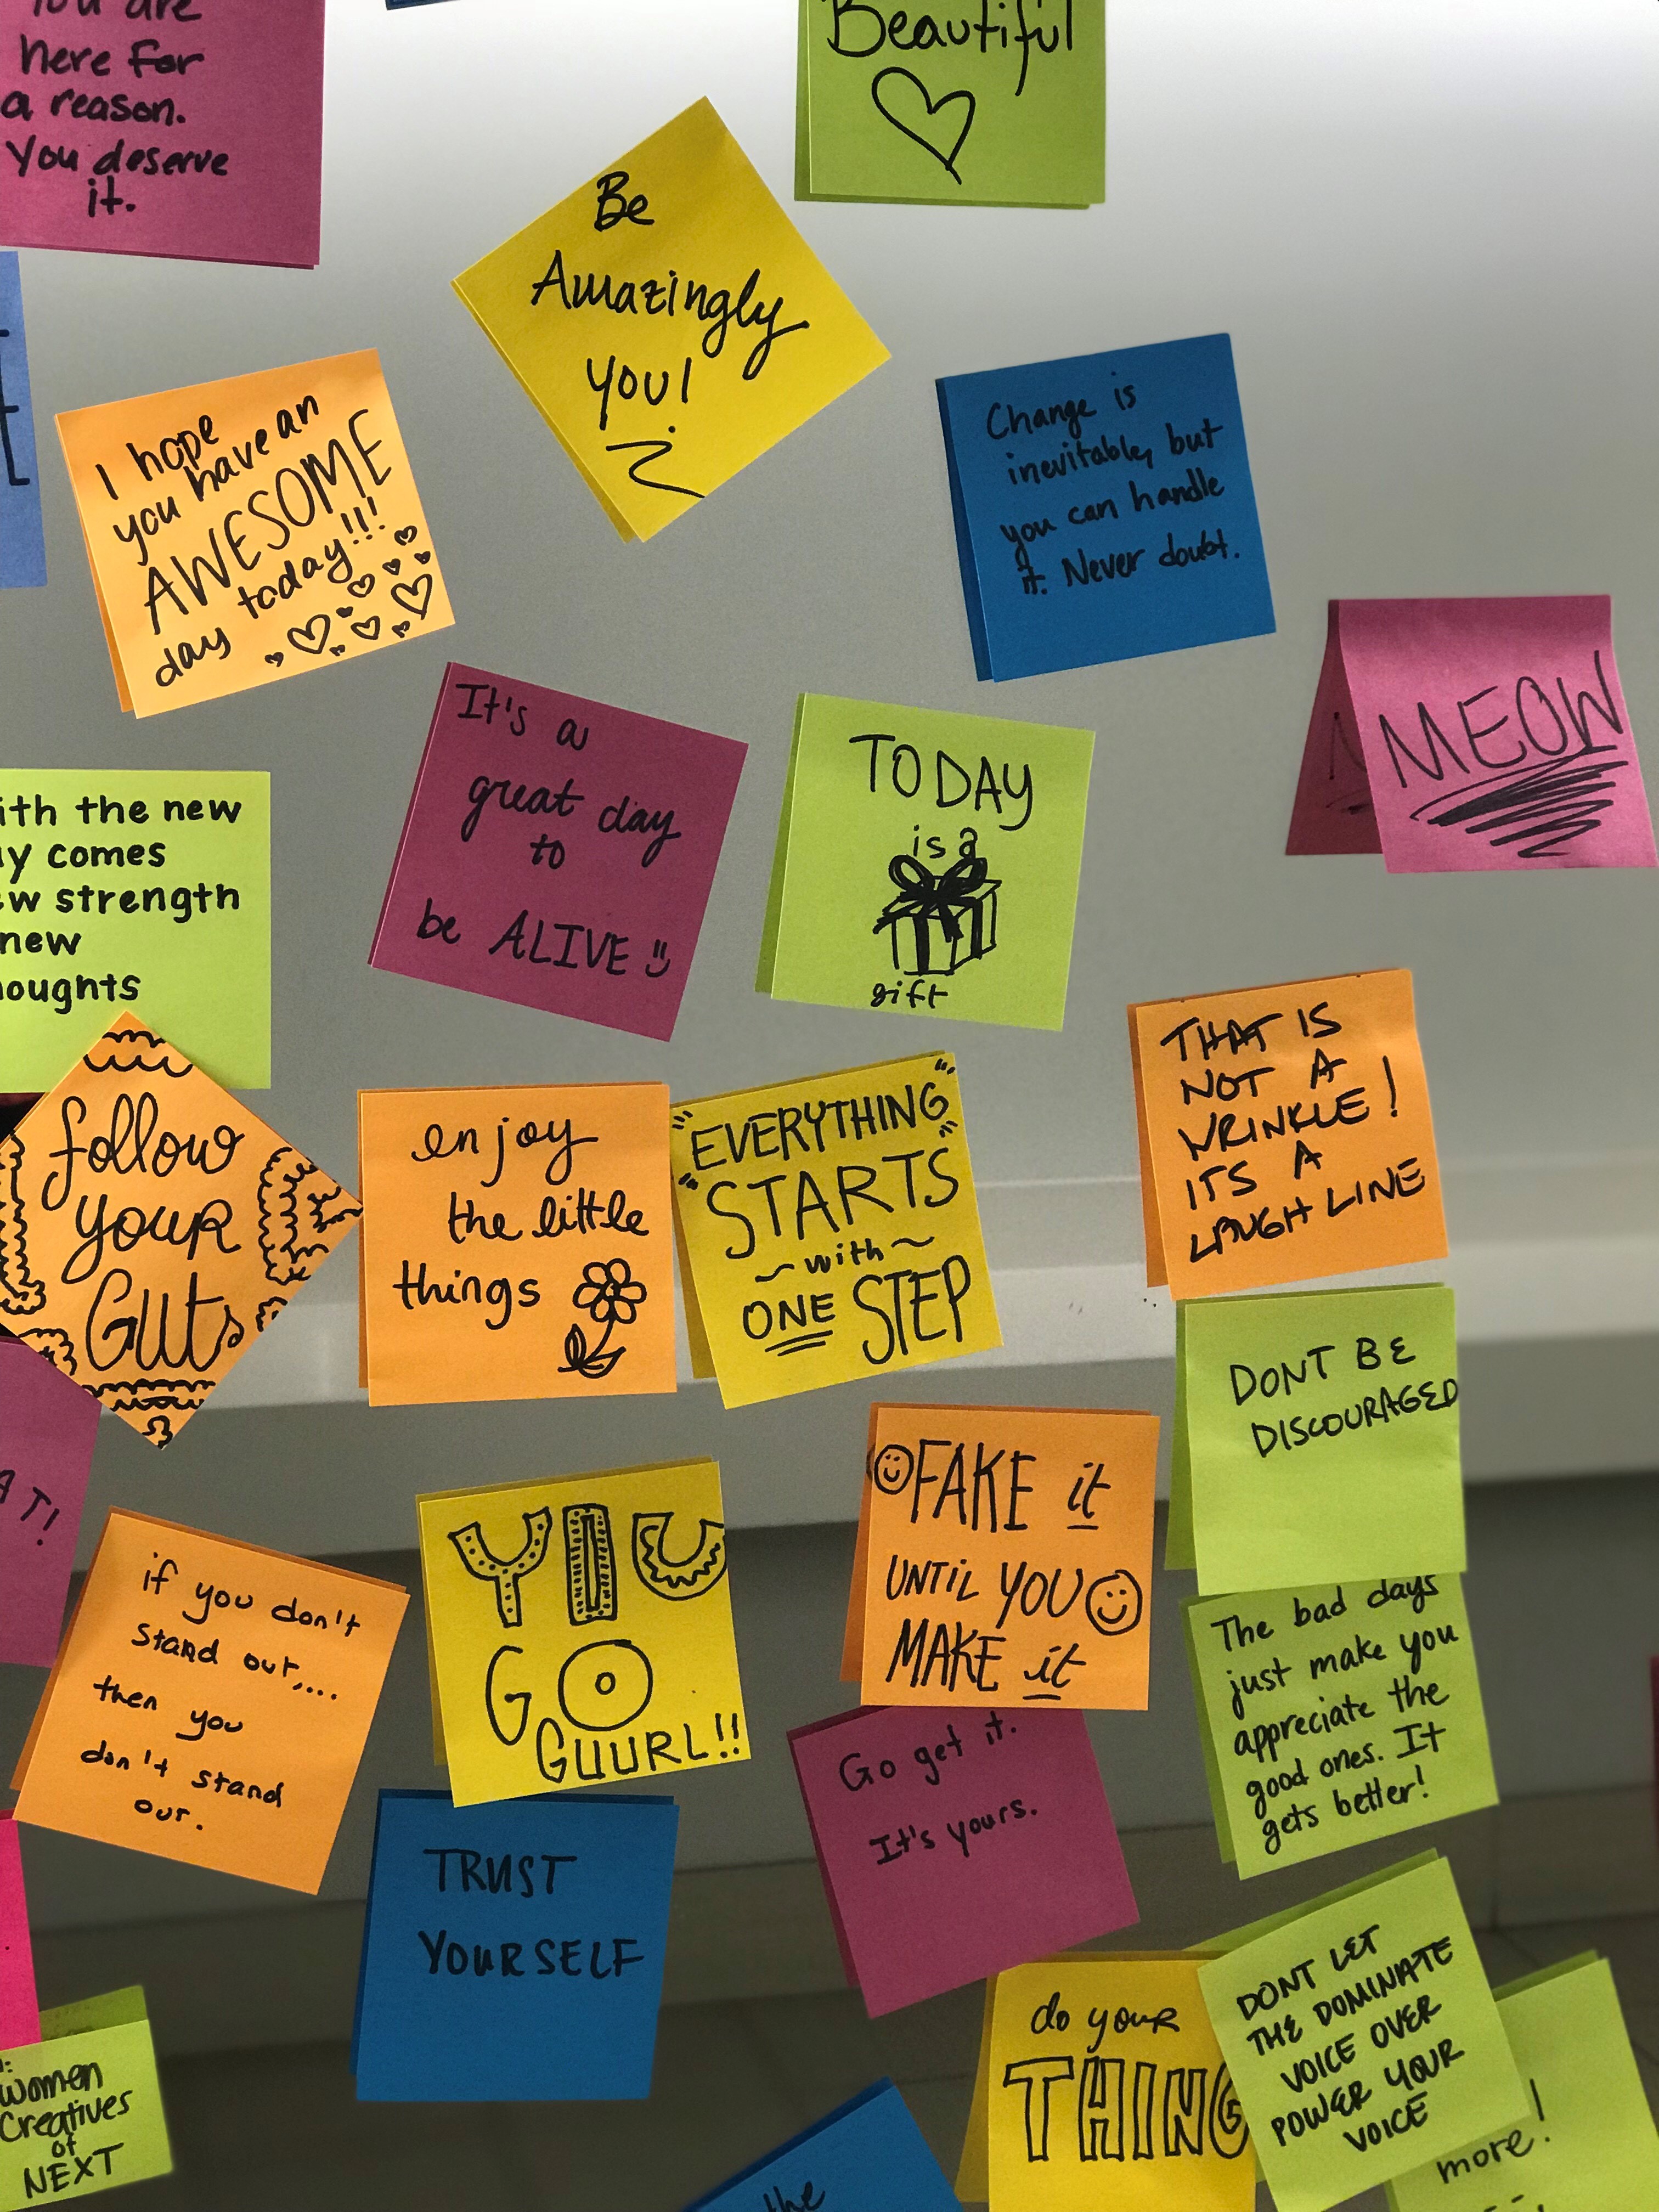 You are
here for
a reason.
You deserve
it.
Beautiful
Be
Amazingly
you!
I hope
you have an
AWESOME
day today!!!
Change is
inevitable, but
you can handle
it. Never doubt.
MEOW
It's a
great day
to
be ALIVE
TODAY
is a
gift
the new
comes
strength
new
THAT IS
NOT A
WRINKLE!
ITS A
LAUGH LINE
follow
your
Guts
enjoy
the little
things
"EVERYTHING"
"STARTS"
~with~
ONE STEP
DONT BE
DISCOURAGED
FAKE it
UNTIL YOU
MAKE it
YOU
GO
GUURL!!
if you don't
stand out,...
then you
don't stand
out.
The bad days
just make you
appreciate the
good ones. It
gets better!
Go get it.
It's yours.
TRUST
YOURSELF
do your
THING
DONT LET
THE DOMINATE
VOICE OVER
POWER YOUR
VOICE
women
Creatives
of
NEXT
more!
the